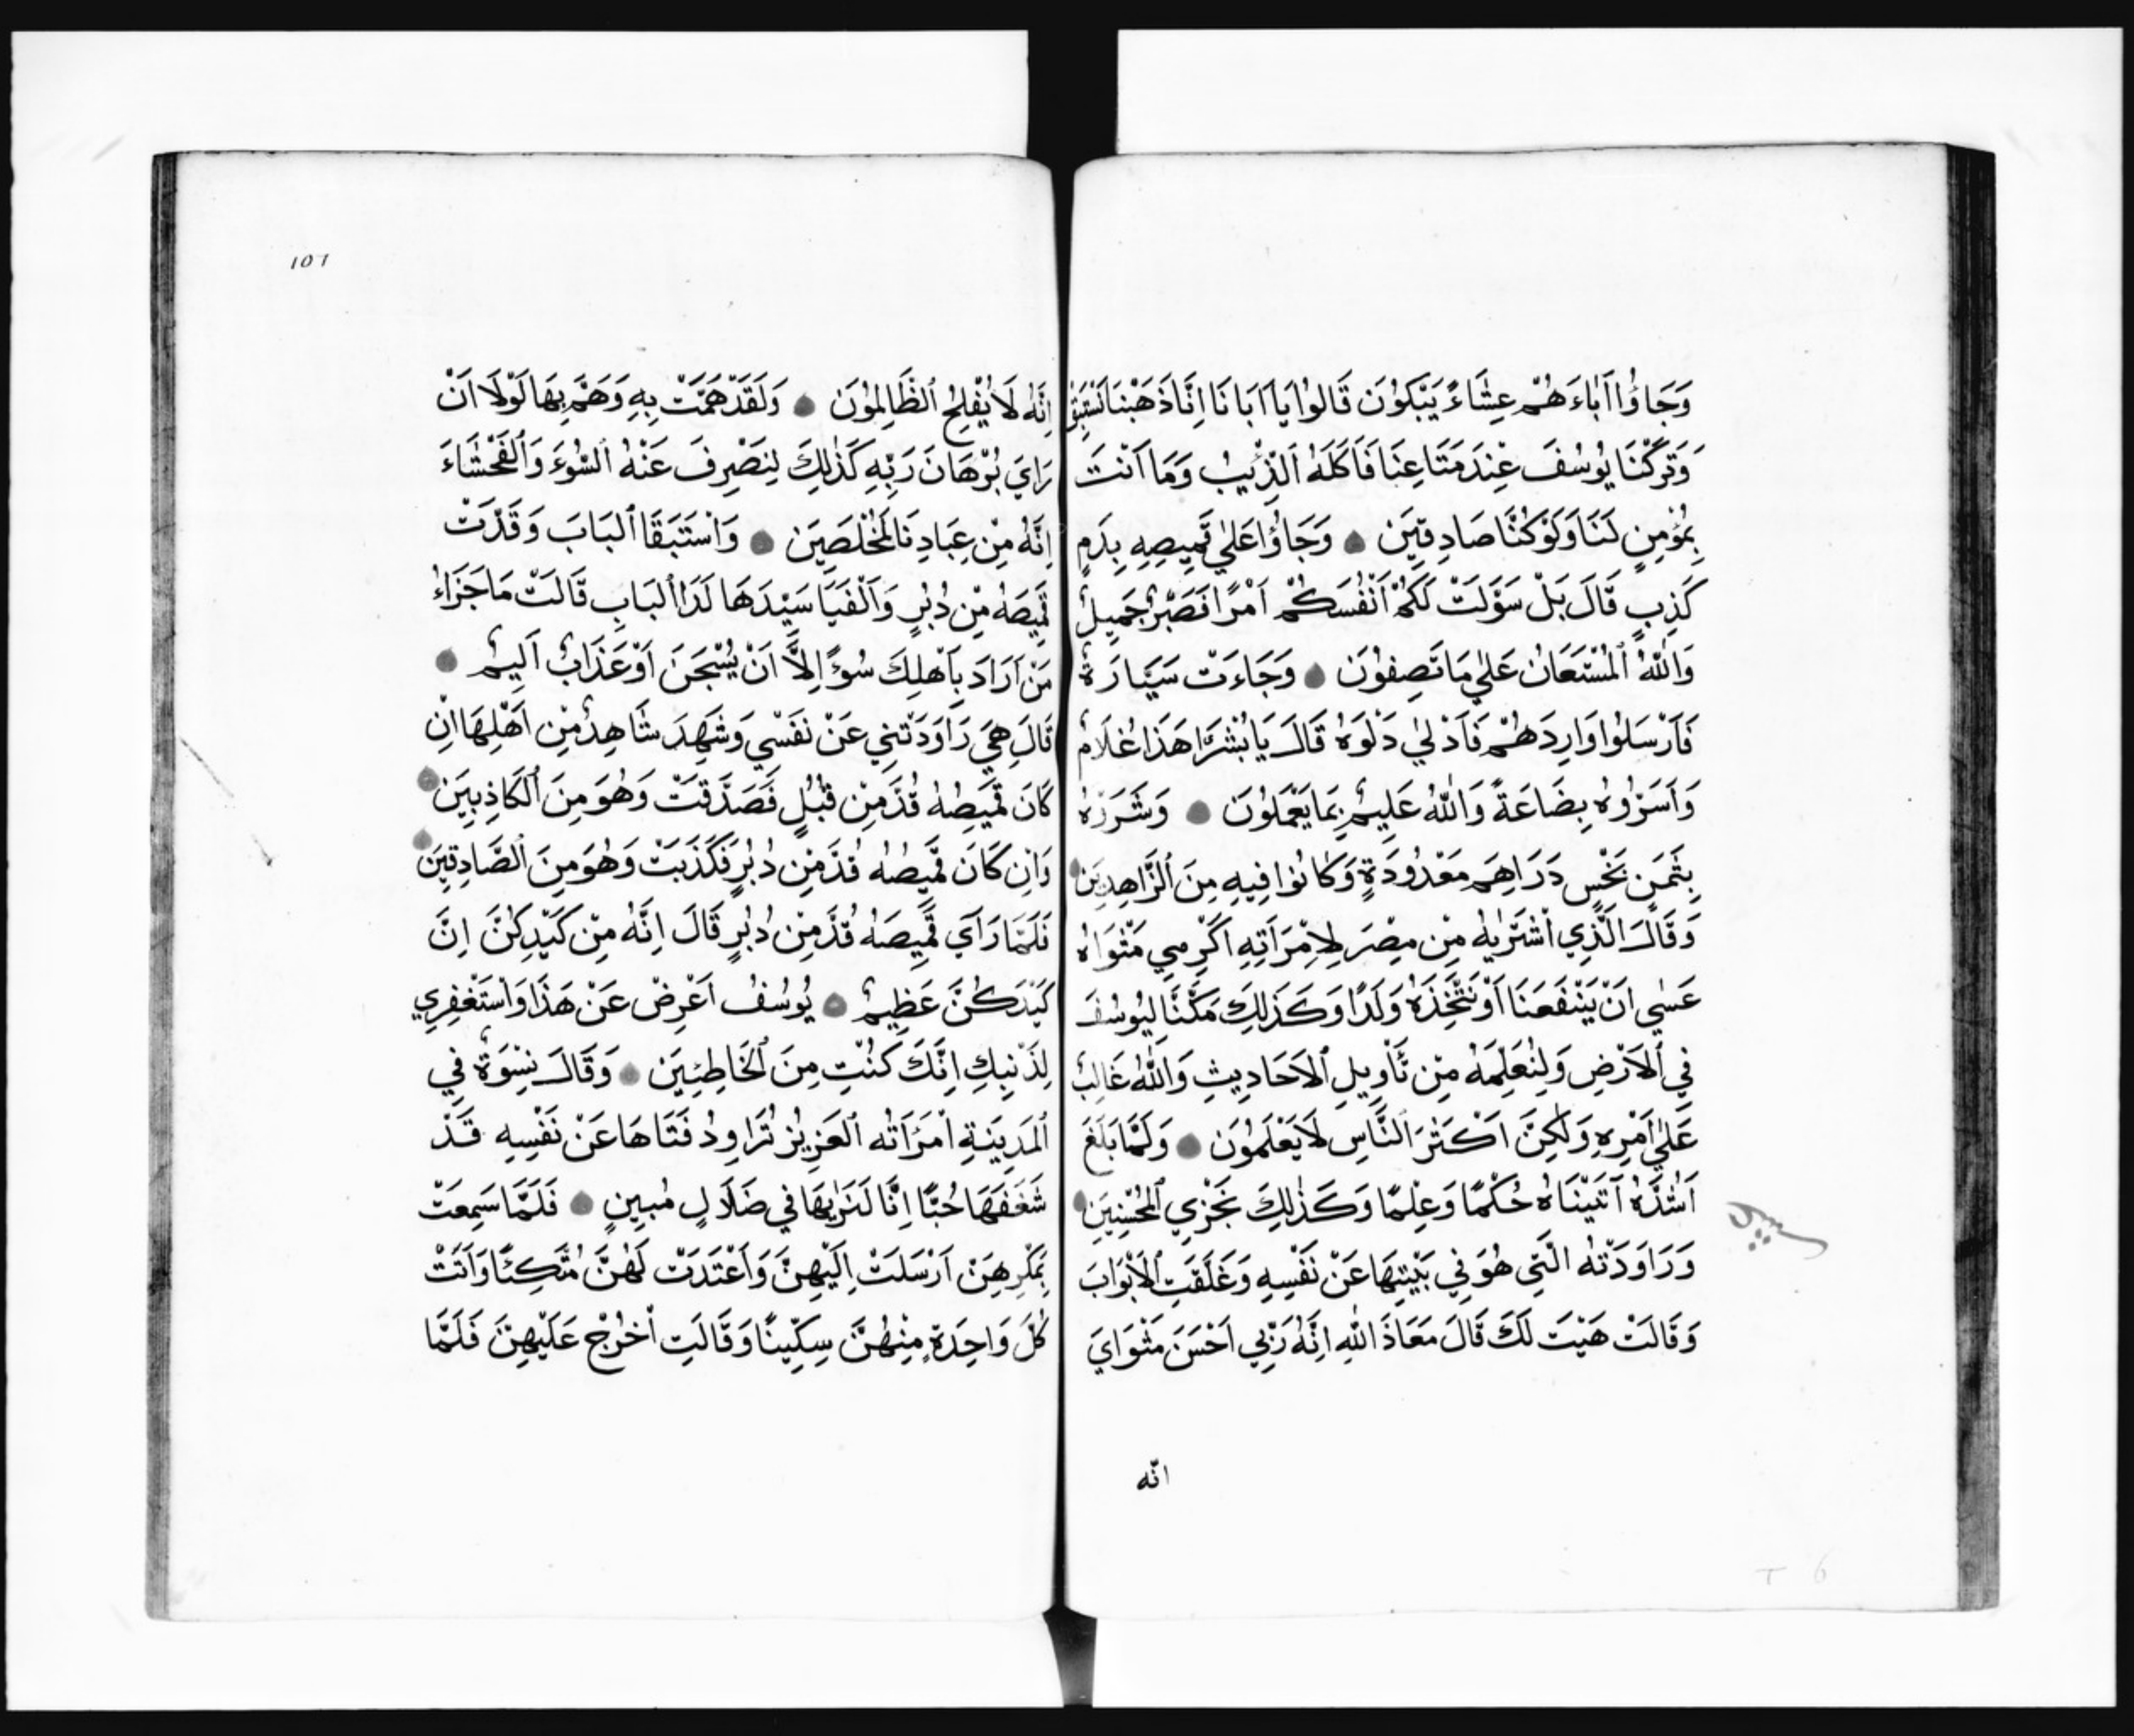 وَجَاؤُا اَبَاءَهُمْ عِشَاءً يَبْكُونَ قَالُوا يَا اَبَانَا اِنَّا ذَهَبْنَا نَسْتَبِقُ
وَتَرَكْنَا يُوسُفَ عِنْدَ مَتَاعِنَا فَاَكَلَهُ الذِّئْيبُ وَمَا اَنْتَ
بِمُؤْمِنٍ لَنَا وَلَوْ كُنَّا صَادِقِينَ وَجَاؤُا عَلٰي قَمِيصِهِ بِدَمٍ
كَذِبٍ قَالَ بَلْ سَوَّلَتْ لَكُمْ اَنْفُسَكُمْ اَمْرًا فَصَبْرٌ جَمِيلٌ
وَاللّٰهُ ٱلْمُسْتَعَانُ عَلٰي مَا تَصِفُونَ وَجَاءَتْ سَيَّارَةٌ
فَاَرْسَلُوا وَارِدَهُمْ فَاَدْلٰي دَلْوَهُ قَالَ يَا بُشْرَا هَذَا غُلَامٌ
وَاَسَرُّوهُ بِضَاعَةً وَاللّٰهُ عَلِيمٌ بِمَا يَعْمَلُونَ وَشَرَوْهُ
بِثَمَنٍ بَخْسٍ دَرَاهِمَ مَعْدُودَةٍ وَكَانُوا فِيهِ مِنَ ٱلزَّاهِدِينَ
وَقَالَ الَّذِي اْشْتَرٰيهُ مِنْ مِصْرَ لِاِمْرَاَتِهِ اَكْرِمِي مَثْوَاهُ
عَسٰي اَنْ يَنْفَعَنَا اَوْ نَتَّخِذَهُ وَلَدًا وَكَذٰلِكَ مَكَّنَّا لِيُوسُفَ
فِي ٱلْاَرْضِ وَلِنُعَلِّمَهُ مِنْ تَأْوِيلِ ٱلْاَحَادِيثِ وَاللّٰهُ غَالِبٌ
عَلٰي اَمْرِهِ وَلٰكِنَّ اَكْثَرَ ٱلنَّاسِ لَا يَعْلَمُونَ وَلَمَّا بَلَغَ
اَشُدَّهُ آتَيْنَاهُ حُكْمًا وَعِلْمًا وَكَذٰلِكَ نَجْزِي ٱلْمُحْسِنِينَ
وَرَاوَدَتْهُ الَّتِي هُوَ فِي بَيْتِهَا عَنْ نَفْسِهِ وَغَلَّقَتِ ٱلْاَبْوَابَ
وَقَالَتْ هَيْتَ لَكَ قَالَ مَعَاذَ اللّٰهِ اِنَّهُ رَبِّي اَحْسَنَ مَثْوَايَ
انّه
١٥٦
اِنَّهُ لَا يُفْلِحُ ٱلظَّالِمُونَ وَلَقَدْ هَمَّتْ بِهِ وَهَمَّ بِهَا لَوْلَا اَنْ
رَاٰيَ بُرْهَانَ رَبِّهِ كَذٰلِكَ لِنَصْرِفَ عَنْهُ ٱلسُّوءَ وَٱلْفَحْشَاءَ
اِنَّهُ مِنْ عِبَادِنَا ٱلْمُخْلَصِينَ وَاْسْتَبَقَا ٱلْبَابَ وَقَدَّتْ
قَمِيصَهُ مِنْ دُبُرٍ وَاَلْفَيَا سَيِّدَهَا لَدَا ٱلْبَابِ قَالَتْ مَا جَزَاءُ
مَنْ اَرَادَ بِاَهْلِكَ سُوءًا اِلَّا اَنْ يُسْجَنَ اَوْ عَذَابٌ اَلِيمٌ
قَالَ هِيَ رَاوَدَتْنِي عَنْ نَفْسِي وَشَهِدَ شَاهِدٌ مِنْ اَهْلِهَا اِنْ
كَانَ قَمِيصُهُ قُدَّ مِنْ قُبُلٍ فَصَدَقَتْ وَهُوَ مِنَ ٱلْكَاذِبِينَ
وَاِنْ كَانَ قَمِيصُهُ قُدَّ مِنْ دُبُرٍ فَكَذَبَتْ وَهُوَ مِنَ ٱلصَّادِقِينَ
فَلَمَّا رَاَي قَمِيصَهُ قُدَّ مِنْ دُبُرٍ قَالَ اِنَّهُ مِنْ كَيْدِكُنَّ اِنَّ
كَيْدَكُنَّ عَظِيمٌ يُوسُفُ اَعْرِضْ عَنْ هَذَا وَاْسْتَغْفِرِي
لِذَنْبِكِ اِنَّكَ كُنْتِ مِنَ ٱلْخَاطِئِينَ وَقَالَ نِسْوَةٌ فِي
ٱلْمَدِينَةِ اْمْرَاَتُه ٱلْعَزِيزِ تُرَاوِدُ فَتَاهَا عَنْ نَفْسِهِ قَدْ
شَغَفَهَا حُبًّا اِنَّا لَنَرٰيهَا فِي ضَلَالٍ مُبِينٍ فَلَمَّا سَمِعَتْ
بِمَكْرِهِنَّ اَرْسَلَتْ اِلَيْهِنَّ وَاَعْتَدَتْ لَهُنَّ مُتَّكِئًا وَاَتَتْ
كُلَّ وَاحِدَةٍ مِنْهُنَّ سِكِّينًا وَقَالَتِ اْخْرُجْ عَلَيْهِنَّ فَلَمَّا